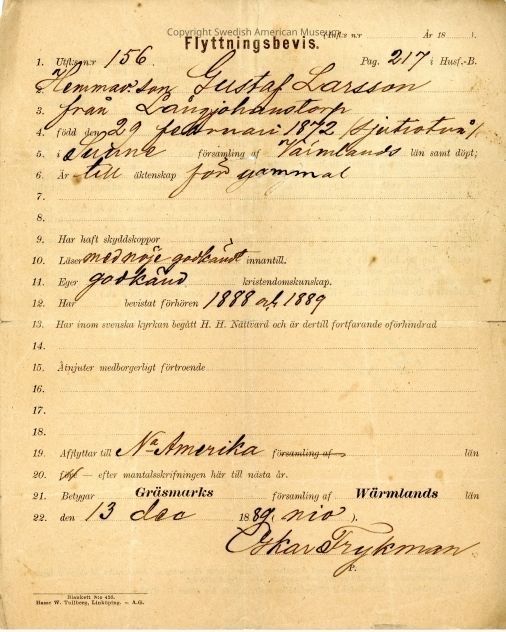 Copyright Swedish American Museum
(Infl: n:r År 18 ).
Flyttningsbevis.
1. Utfl: n:r 156 Pag. 217 i Husf.-B.
2. Hemmav. son Gustaf Larsson
3. från Långjohanstorp
4. född den 29 februari 1872 (sjutiotvå)
5. i Sunne församling af Värmlands län samt döpt;
6. Är till äktenskap för gammal
7.
8.
9. Har haft skyddskoppor
10. Läser med nöje godkändt innantill.
11. Eger godkänd kristendomskunskap.
12. Har bevistat förhören 1888 och 1889
13. Har inom svenska kyrkan begått H. H. Nattvard och är dertill fortfarande oförhindrad
14.
15. Åtnjuter medborgerligt förtroende
16.
17.
18.
19. Afflyttar till Na Amerika församling af län
20. — efter mantalsskrifningen här till nästa år.
21. Betygar Gräsmarks församling af Wärmlands län
22. den 13 dec 1889 (nio).
Oskar Trykman
P.
Blankett N:o 436.
Hasse W. Tullberg, Linköping. – A.G.